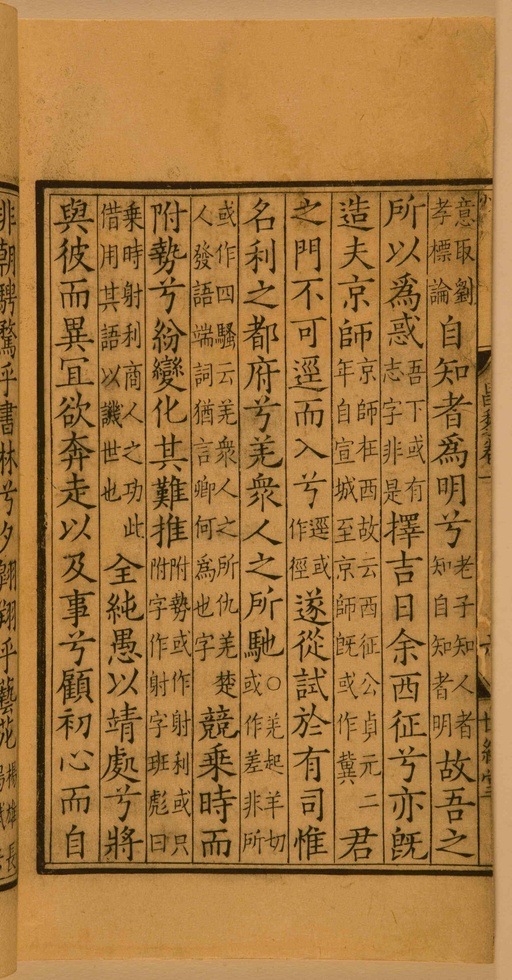 意取劉孝標論自知者爲明兮老子知人者知自知者明故吾之
所以爲惑吾下或有志字非是擇吉日余西征兮亦旣
造夫京師京師在西故云西征公貞元二年自宣城至京師旣或作冀君
之門不可逕而入兮逕或作徑遂從試於有司惟
名利之都府兮羌衆人之所馳○羌起羊切或作差非所
或作四騷云羌衆人之所仇羌楚人發語端詞猶言卿何爲也字競乘時而
附勢兮紛變化其難推附勢或作射利或只附字作射字班彪曰
乘時射利商人之功此借用其語以譏世也全純愚以靖處兮將
與彼而異冝欲奔走以及事兮顧初心而自
非朝騁騖乎書林兮夕翱翔乎藝